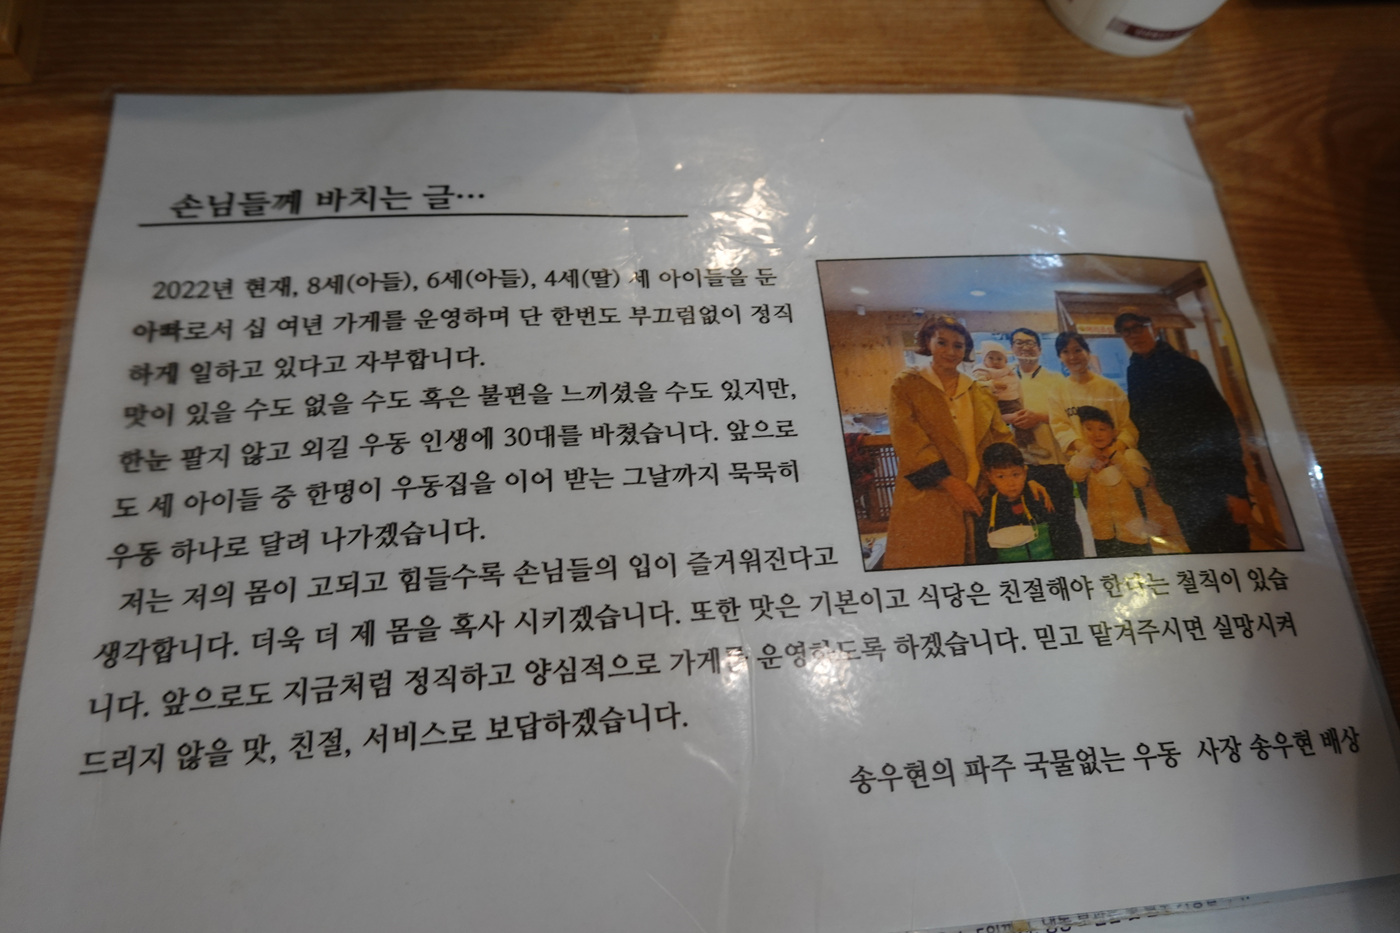 손님들께 바치는 글...
2022년 현재, 8세(아들), 6세(아들), 4세(딸) 세 아이들을 둔
아빠로서 십 여년 가게를 운영하며 단 한번도 부끄럼없이 정직
하게 일하고 있다고 자부합니다.
맛이 있을 수도 없을 수도 혹은 불편을 느끼셨을 수도 있지만,
한눈 팔지 않고 외길 우동 인생에 30대를 바쳤습니다. 앞으로
도 세 아이들 중 한명이 우동집을 이어 받는 그날까지 묵묵히
우동 하나로 달려 나가겠습니다.
저는 저의 몸이 고되고 힘들수록 손님들의 입이 즐거워진다고
생각합니다. 더욱 더 제 몸을 혹사 시키겠습니다. 또한 맛은 기본이고 식당은 친절해야 한다는 철칙이 있습
니다. 앞으로도 지금처럼 정직하고 양심적으로 가게를 운영하도록 하겠습니다. 믿고 맡겨주시면 실망시켜
드리지 않을 맛, 친절, 서비스로 보답하겠습니다.
송우현의 파주 국물없는 우동 사장 송우현 배상